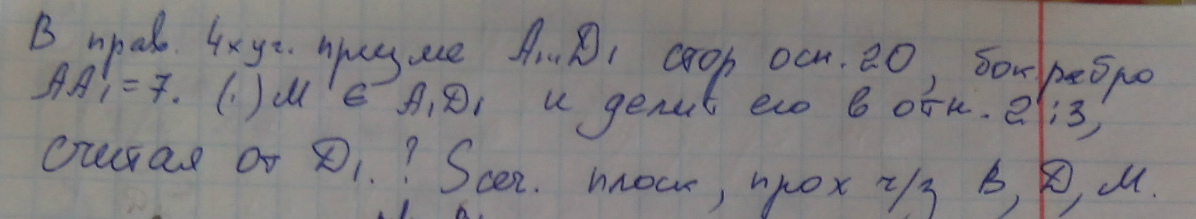 В прав. 4хуг. призме A...D₁ стор осн. 20, бок.ребро
AA₁ = 7. (·) M ∈ A₁D₁ и делит его в отн. 2:3,
считая от D₁. ? Sсеч. плоск, прох ч/з B, D, M.